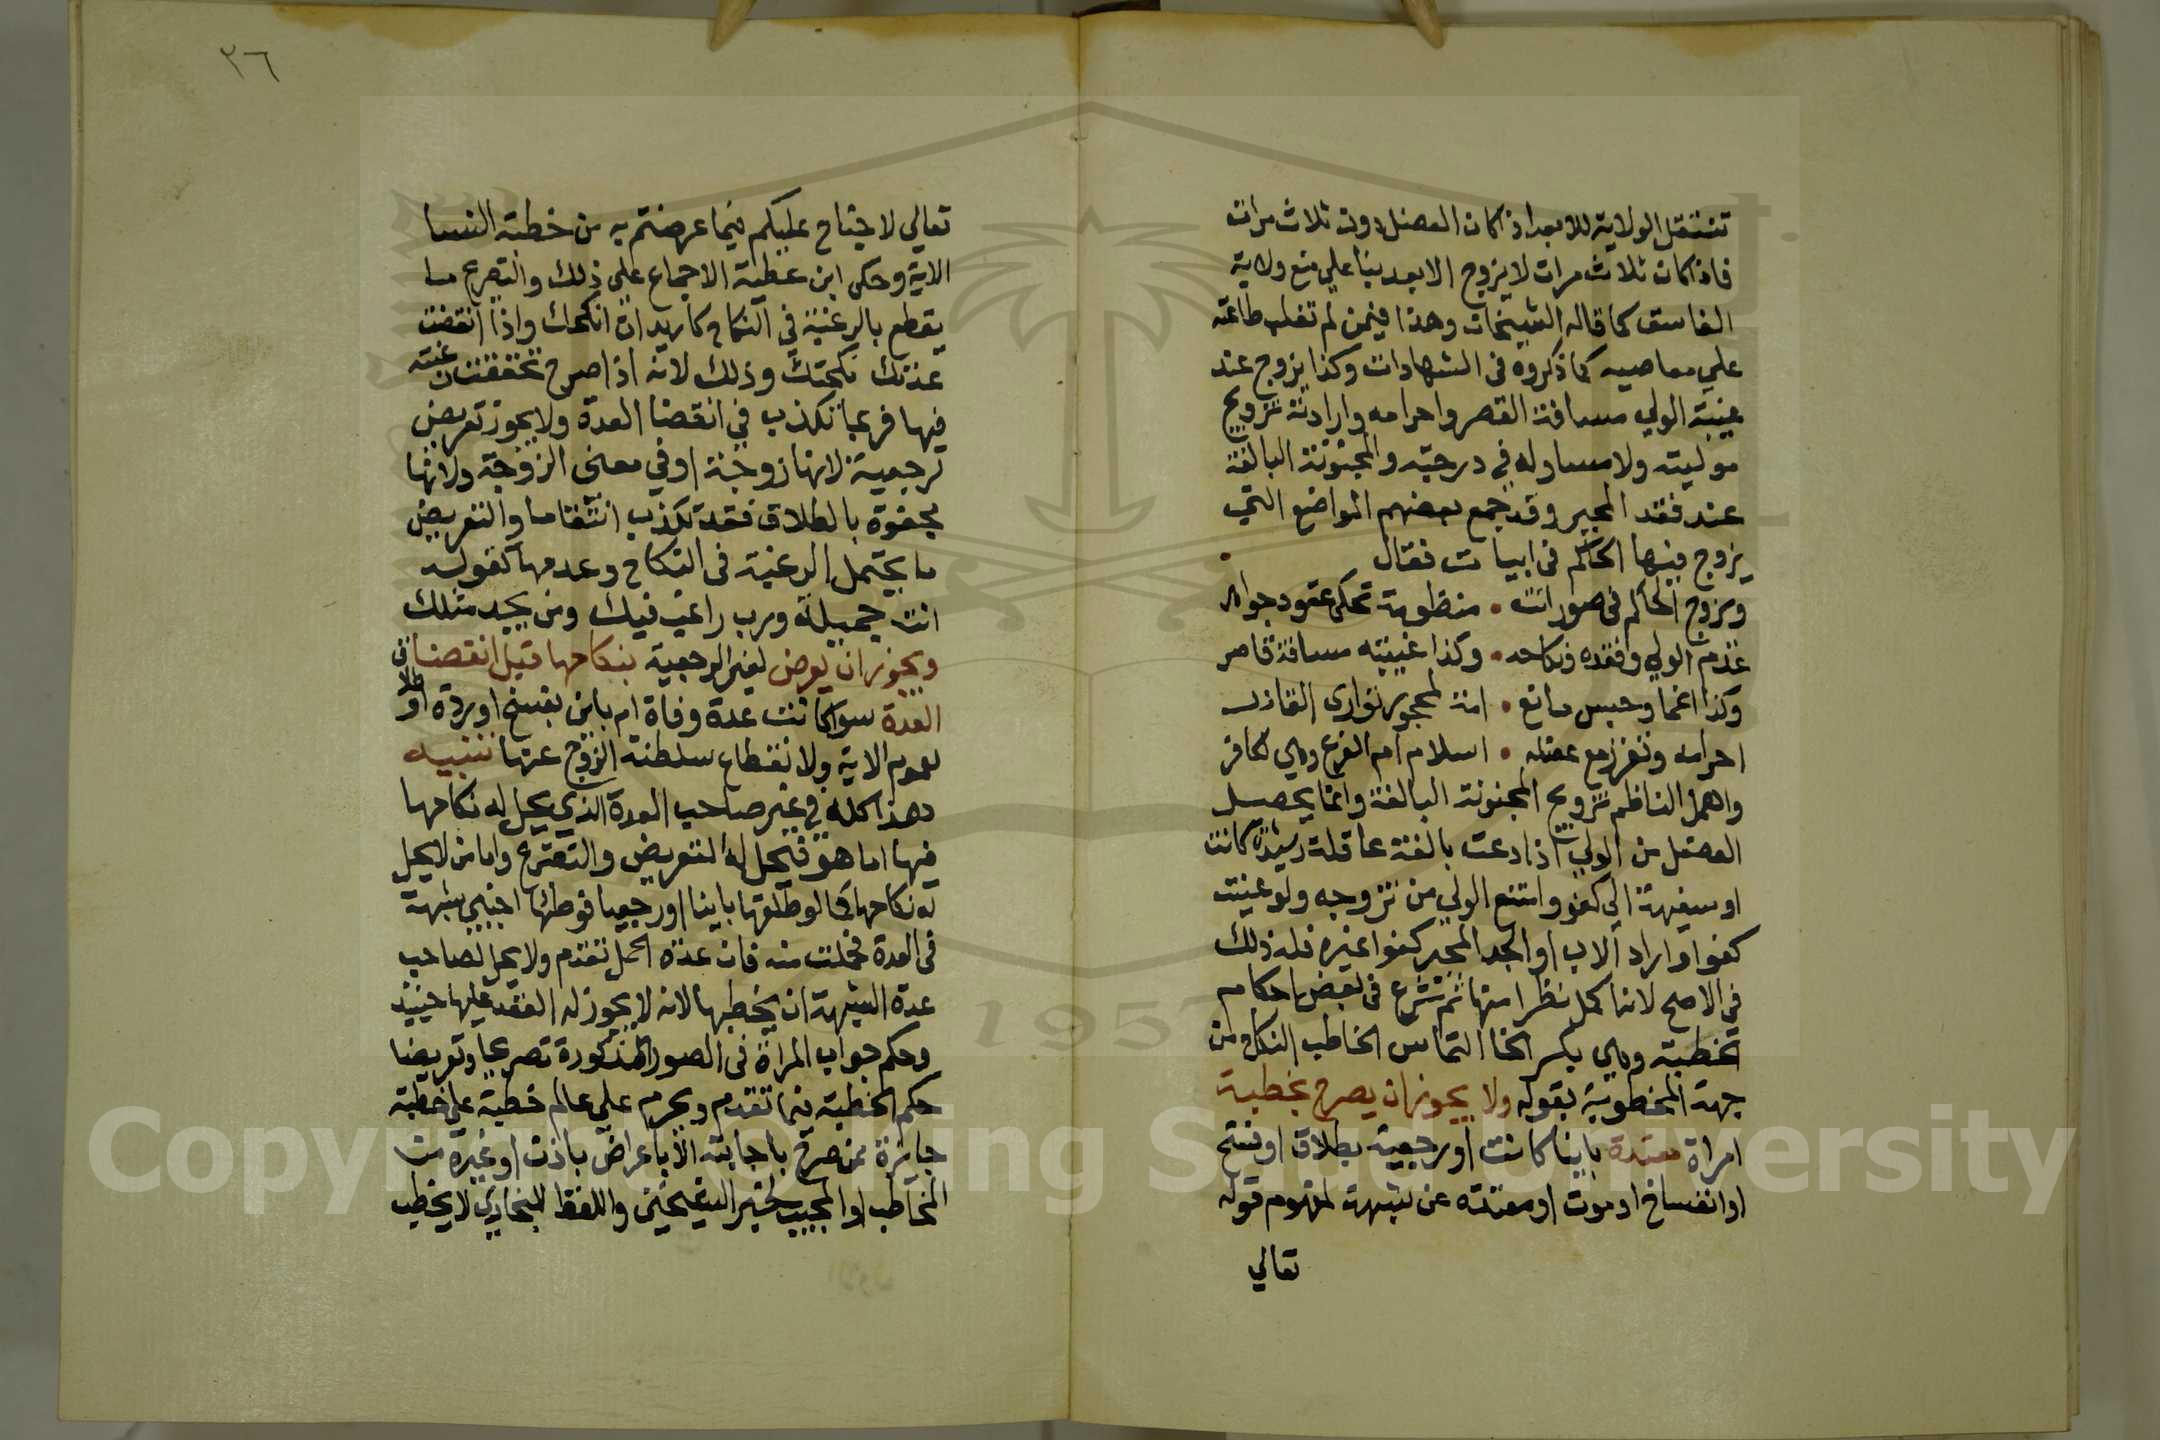 تنتقل الولاية للابعد اذا كان العضل دون ثلاث مرات
فاذا كان ثلاث مرات لا يزوج الابعد بنا على منع ولاية
الفاسق كما قاله الشيخان وهذا فيمن لم تغلب طاعته
علي معاصيه كما ذكروه في الشهادات وكذا يزوج عند
غيبة الولي مسافة القصر واحرامه وارادته تزويج
موليته ولا مساو له في درجته والمجنونة البالغة
عند فقد المجبر وقد جمع بعضهم المواضع التي
يزوج فيها الحاكم في ابيات فقال
ويزوج الحاكم في صور اتت • منظومة تحكي عقود جواهر
عدم الولي وفقده ونكاحه • وكذا غيبته مسافة قاصر
وكذا اغما وحبس مانع • امة لمحجور تواري القادر
احرامه وتعزز مع عضله • اسلام ام الفرع وهي لكافر
واهمل الناظم تزويج المجنونة البالغة وانما يحصل
العضل من الولي اذا دعت بالغة عاقلة رشيدة كانت
او سفيهة الي كفو وامتنع الولي من تزوجه ولو عينت
كفوا واراد الاب او الجد المجبر كفوا غيره فله ذلك
في الاصح لانه اكمل نظرا منها ثم شرع في بعض احكام
الخطبة وهي بكسر الخا التماس الخاطب النكاح من
جهة المخطوبة بقوله ولا يجوز ان يصرح بخطبة
امراة معتدة باينا كانت او رجعية بطلاق او فسخ
او انفساخ او موت او معتدة عن شبهة لمفهوم قوله
تعالي
٣٦
تعالي لا جناح عليكم فيما عرضتم به من خطبة النسا
الاية وحكى ابن عطية الاجماع على ذلك والتصريح ما
يقطع بالرغبة في النكاح كاريد ان انكحك واذا انقضت
عدتك نكحتك وذلك لانه اذا صرح تحققت رغبته
فيها فربما تكذب في انقضا العدة ولا يجوز تعريض
لرجعية لانها زوجة او في معنى الزوجة ولانها
مجفوة بالطلاق فقد تكذب انتقاما والتعريض
ما يحتمل الرغبة في النكاح وعدمها كقوله
انت جميلة ورب راغب فيك ومن يجد مثلك
ويجوز ان يعرض لغير الرجعية بنكاحها قبل انقضا
العدة سوا كانت عدة وفاة ام باين بفسخ او ردة او طلاق
لعموم الاية ولانقطاع سلطنة الزوج عنها تنبيه
هذا كله في غير صاحب العدة الذي يحل له نكاحها
فيها اما هو فيحل له التعريض والتصريح واما من لا يحل
له نكاحها كما لو طلقها باينا او رجعيا فوطئها اجنبي بشبهة
في العدة فحملت منه فان عدة الحمل تقدم ولا يحل لصاحب
عدة الشبهة ان يخطبها لانه لا يجوز له العقد عليها حينيذ
وحكم جواب المراة في الصور المذكورة تصريحا وتعريضا
حكم الخطبة فيما تقدم ويحرم علي عالم خطبة علي خطبة
جايزة ممن صرح باجابته الا باعراض باذن او غيره من
المخاطب او المجيب لخبر الشيخين واللفظ للبخاري لا يخطب